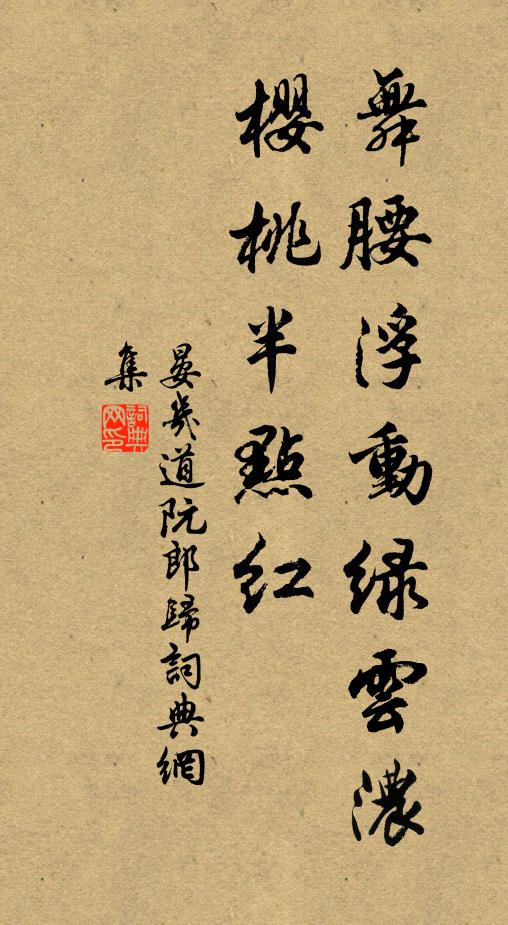 舞腰浮動綠雲濃
櫻桃半點紅
晏幾道阮郎歸詞典網
集
詞典
网印